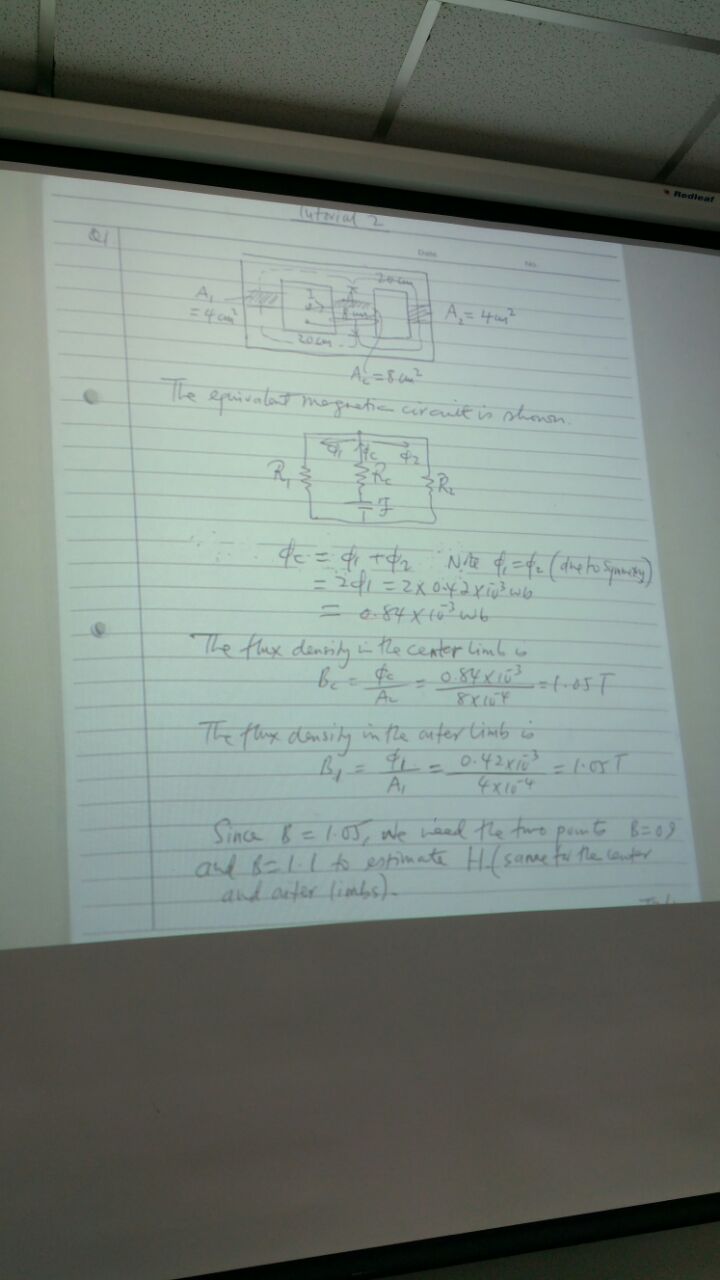 Redleaf
Tutorial 2
Date
No.
Q1
20 cm
A₁
= 4 cm²
I
8 cm
A₂ = 4 cm²
20 cm
Ac = 8 cm²
The equivalent magnetic circuit is shown.
ϕ₁ ϕc ϕ₂
R₁ Rc R₂
F
ϕc = ϕ₁ + ϕ₂ Note ϕ₁ = ϕ₂ (due to symmetry)
= 2ϕ₁ = 2 × 0.42 × 10⁻³ wb
= 0.84 × 10⁻³ wb
The flux density in the center limb is
Bc = ϕc / Ac = 0.84 × 10⁻³ / 8 × 10⁻⁴ = 1.05 T
The flux density in the outer limb is
B₁ = ϕ₁ / A₁ = 0.42 × 10⁻³ / 4 × 10⁻⁴ = 1.05 T
Since B = 1.05, we need the two points B = 0.9
and B = 1.1 to estimate H. (same for the center
and outer limbs).